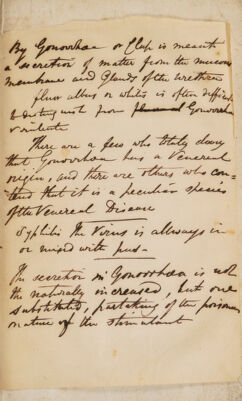 By Gonorrhœa or Clap is meant
a secretion of matter from the mucous
membrane and Glands of the urethra
fluor albus or whites is often difficult
to distinguish from Gonorrhœa
virulenta
There are a few who totaly deny
that Gonorrhœa has a Venereal
origin, and there are others who con-
tend that it is a peculiar species
of the Venereal Disease
Syphilis The Virus is allways in
or mixed with pus-
The secretion in Gonorrhœa is not
the naturally increased, but one
substituted, partaking of the poisonous
nature of the stimulant